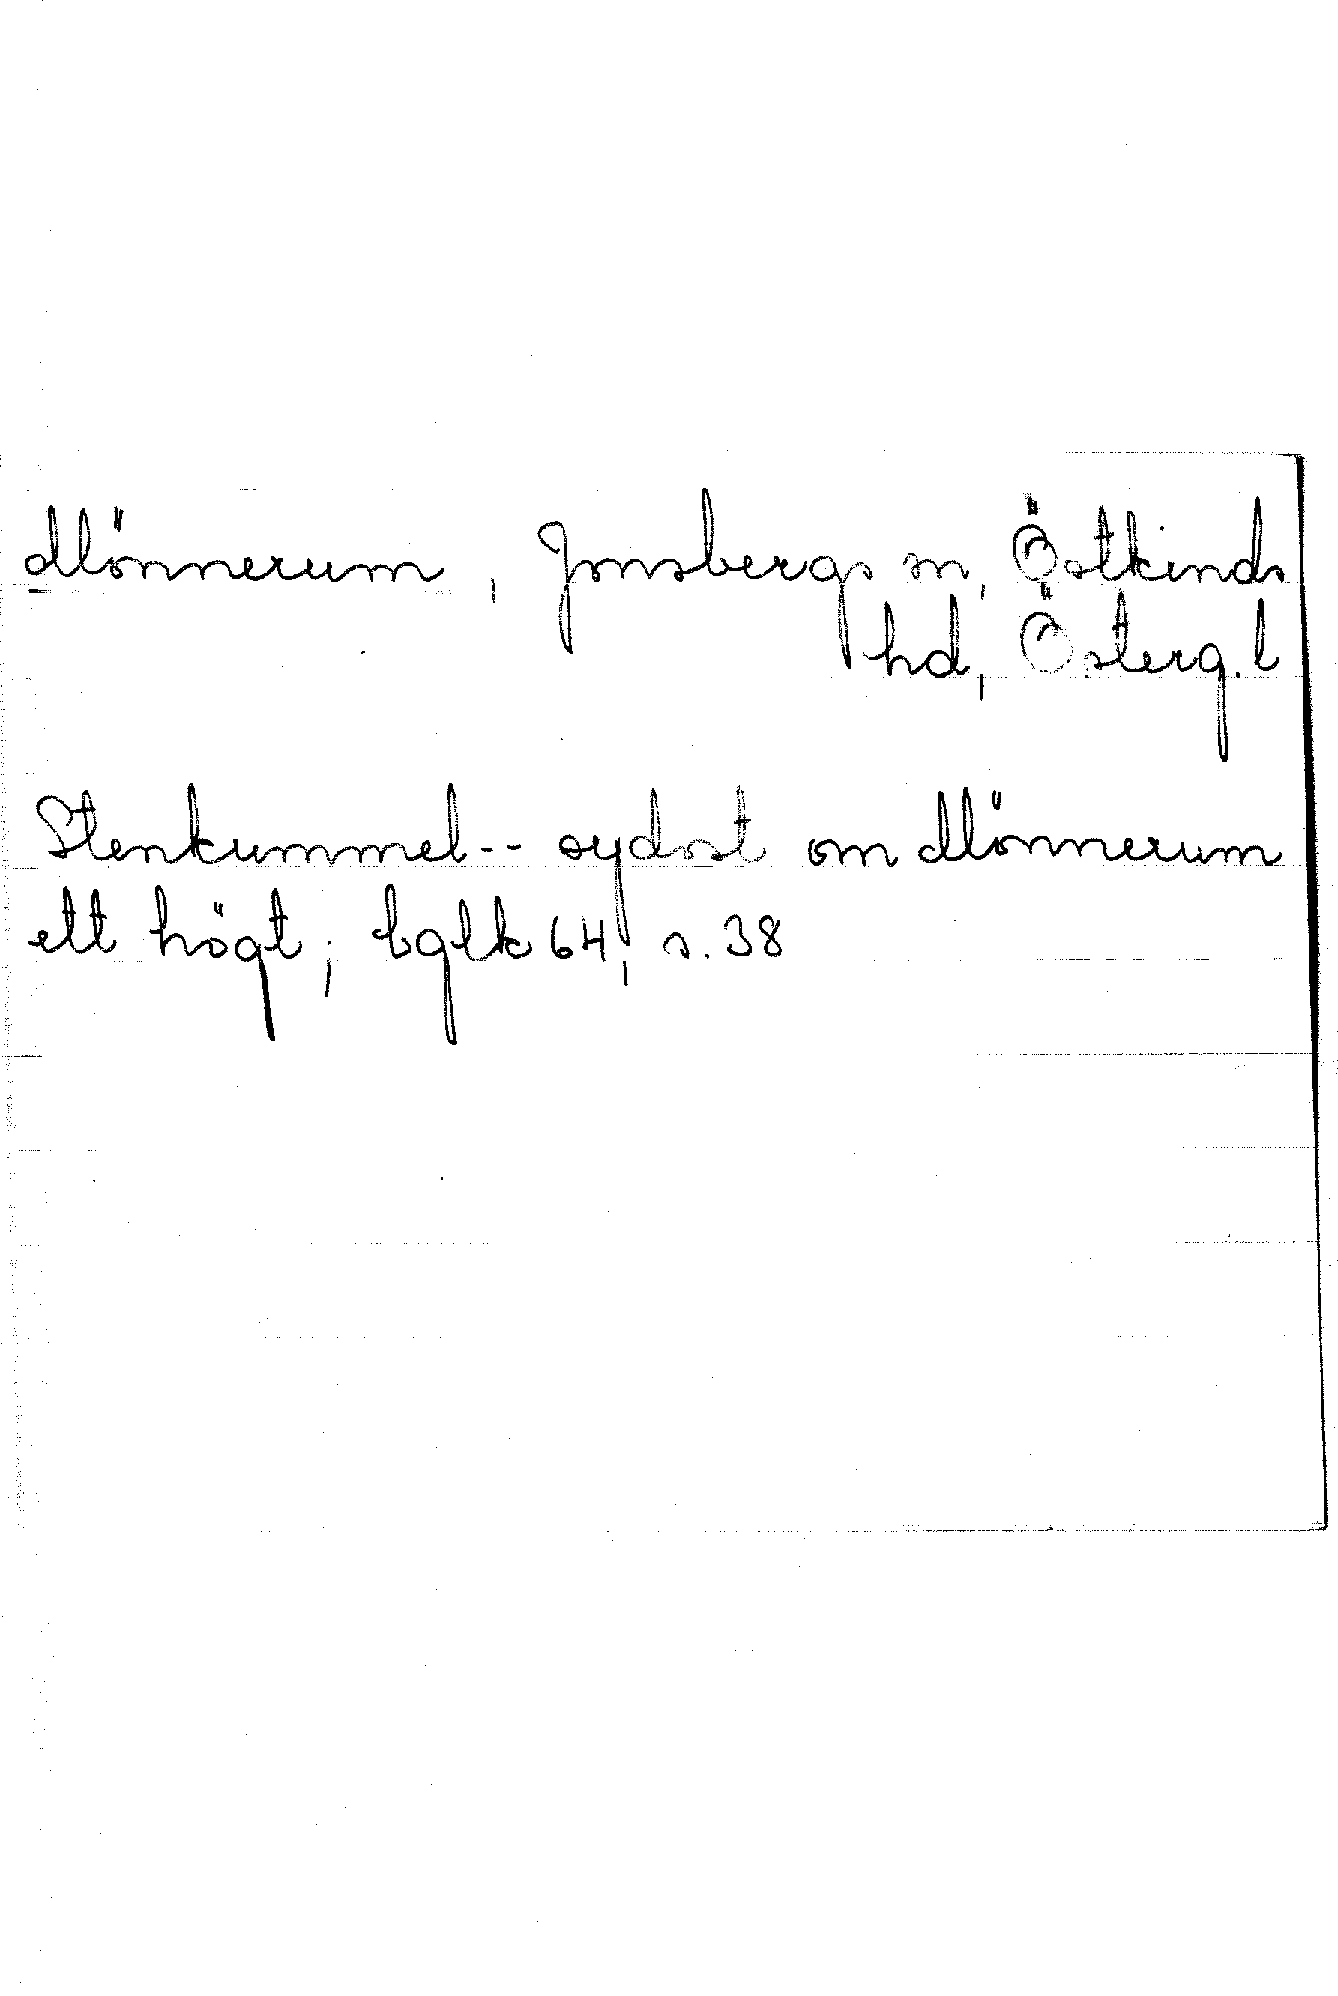 Mönnerum, Jonsbergs sn, Östkinds
hd, Österg.l
Stenkummel -- sydost om Mönnerum
ett högt; bglk 64, s. 38